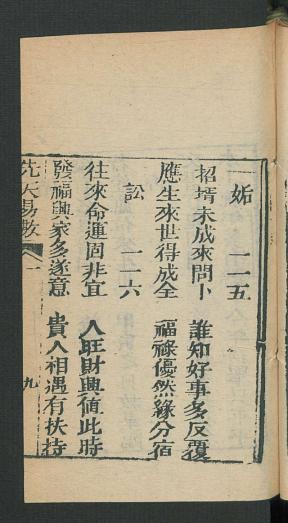 姤 一二五
招壻未成來問卜 誰知好事多反覆
應生來世得成全 福祿優然緣分宿
訟 一二六
往來命運固非宜 人旺財興值此時
發福興家多遂意 貴人相遇有扶持
先天易數 一 九